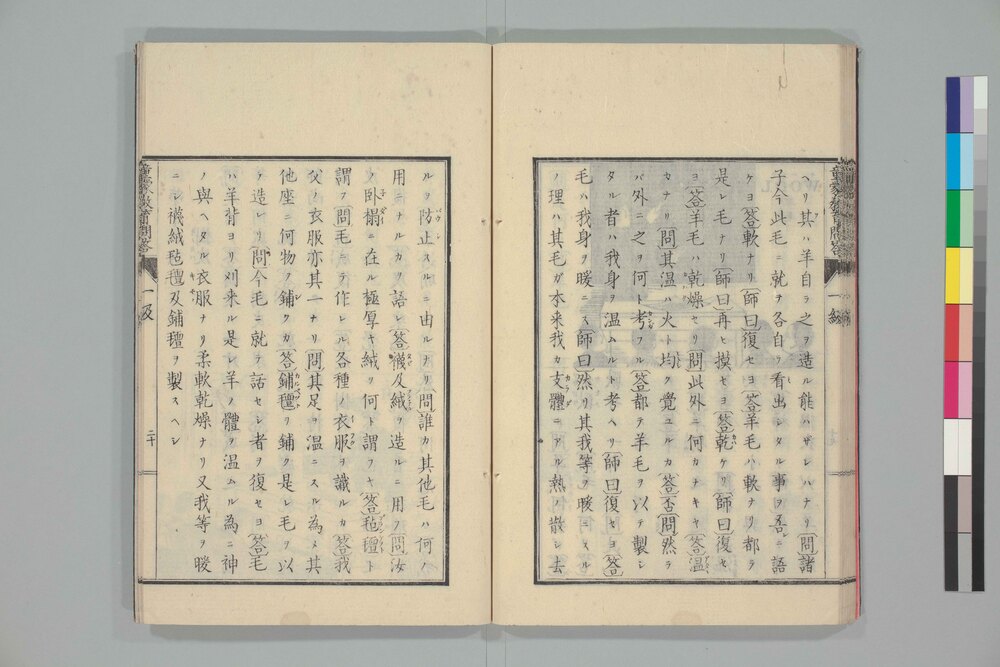 ヘリ其ハ羊自ラ之ヲ造ル能ハザレハナリ問諸
子今此毛ニ就テ各自ラ看出シタル事ヲ吾ニ語
ケヨ答軟ナリ師曰復セヨ答羊毛ハ軟ナリ都テ
是レ毛ナリ師曰再ヒ摸セヨ答乾ケリ師曰復セ
ヨ答羊毛ハ乾燥セリ問此外ニ何カナキヤ答温
カナリ問其温ハ火ト均ク覺ユルカ答否問然ラ
バ外ニ之ヲ何ト考フル答都テ羊毛ヲ以テ製シ
タル者ハ我身ヲ温ムルト考ヘリ師曰復セヨ答
毛ハ我身ヲ暖ニス師曰然リ其我等ヲ暖ニスル
ノ理ハ其毛ガ本来我カ支體ニアル熱ノ散シ去
ルヲ防止スルニ由ルナリ問誰カ其他毛ハ何ノ
用ニナルカヲ語レ答襪及絨ヲ造ルニ用ヲ問汝
ノ臥榻ニ在ル極厚キ絨ヲ何ト謂フヤ答毡氊ト
謂フ問毛ニテ作レル各種ノ衣服ヲ識ルカ答我
父ノ衣服亦其一ナリ問其足ヲ温ニスル為メ其
他座ニ何物ヲ鋪クカ答鋪氊リ鋪ク是レ毛ヲ以
テ造レリ問今毛ニ就テ話セシ者ヲ復セヨ答毛
ハ羊背ヨリ刈来ル是レ羊ノ體ヲ温ムル為ニ神
ノ與ヘタル衣服ナリ柔軟乾燥ナリ又我等ヲ暖
ニシ襪絨毡氊及鋪氊ヲ製スヘシ
一級
二十